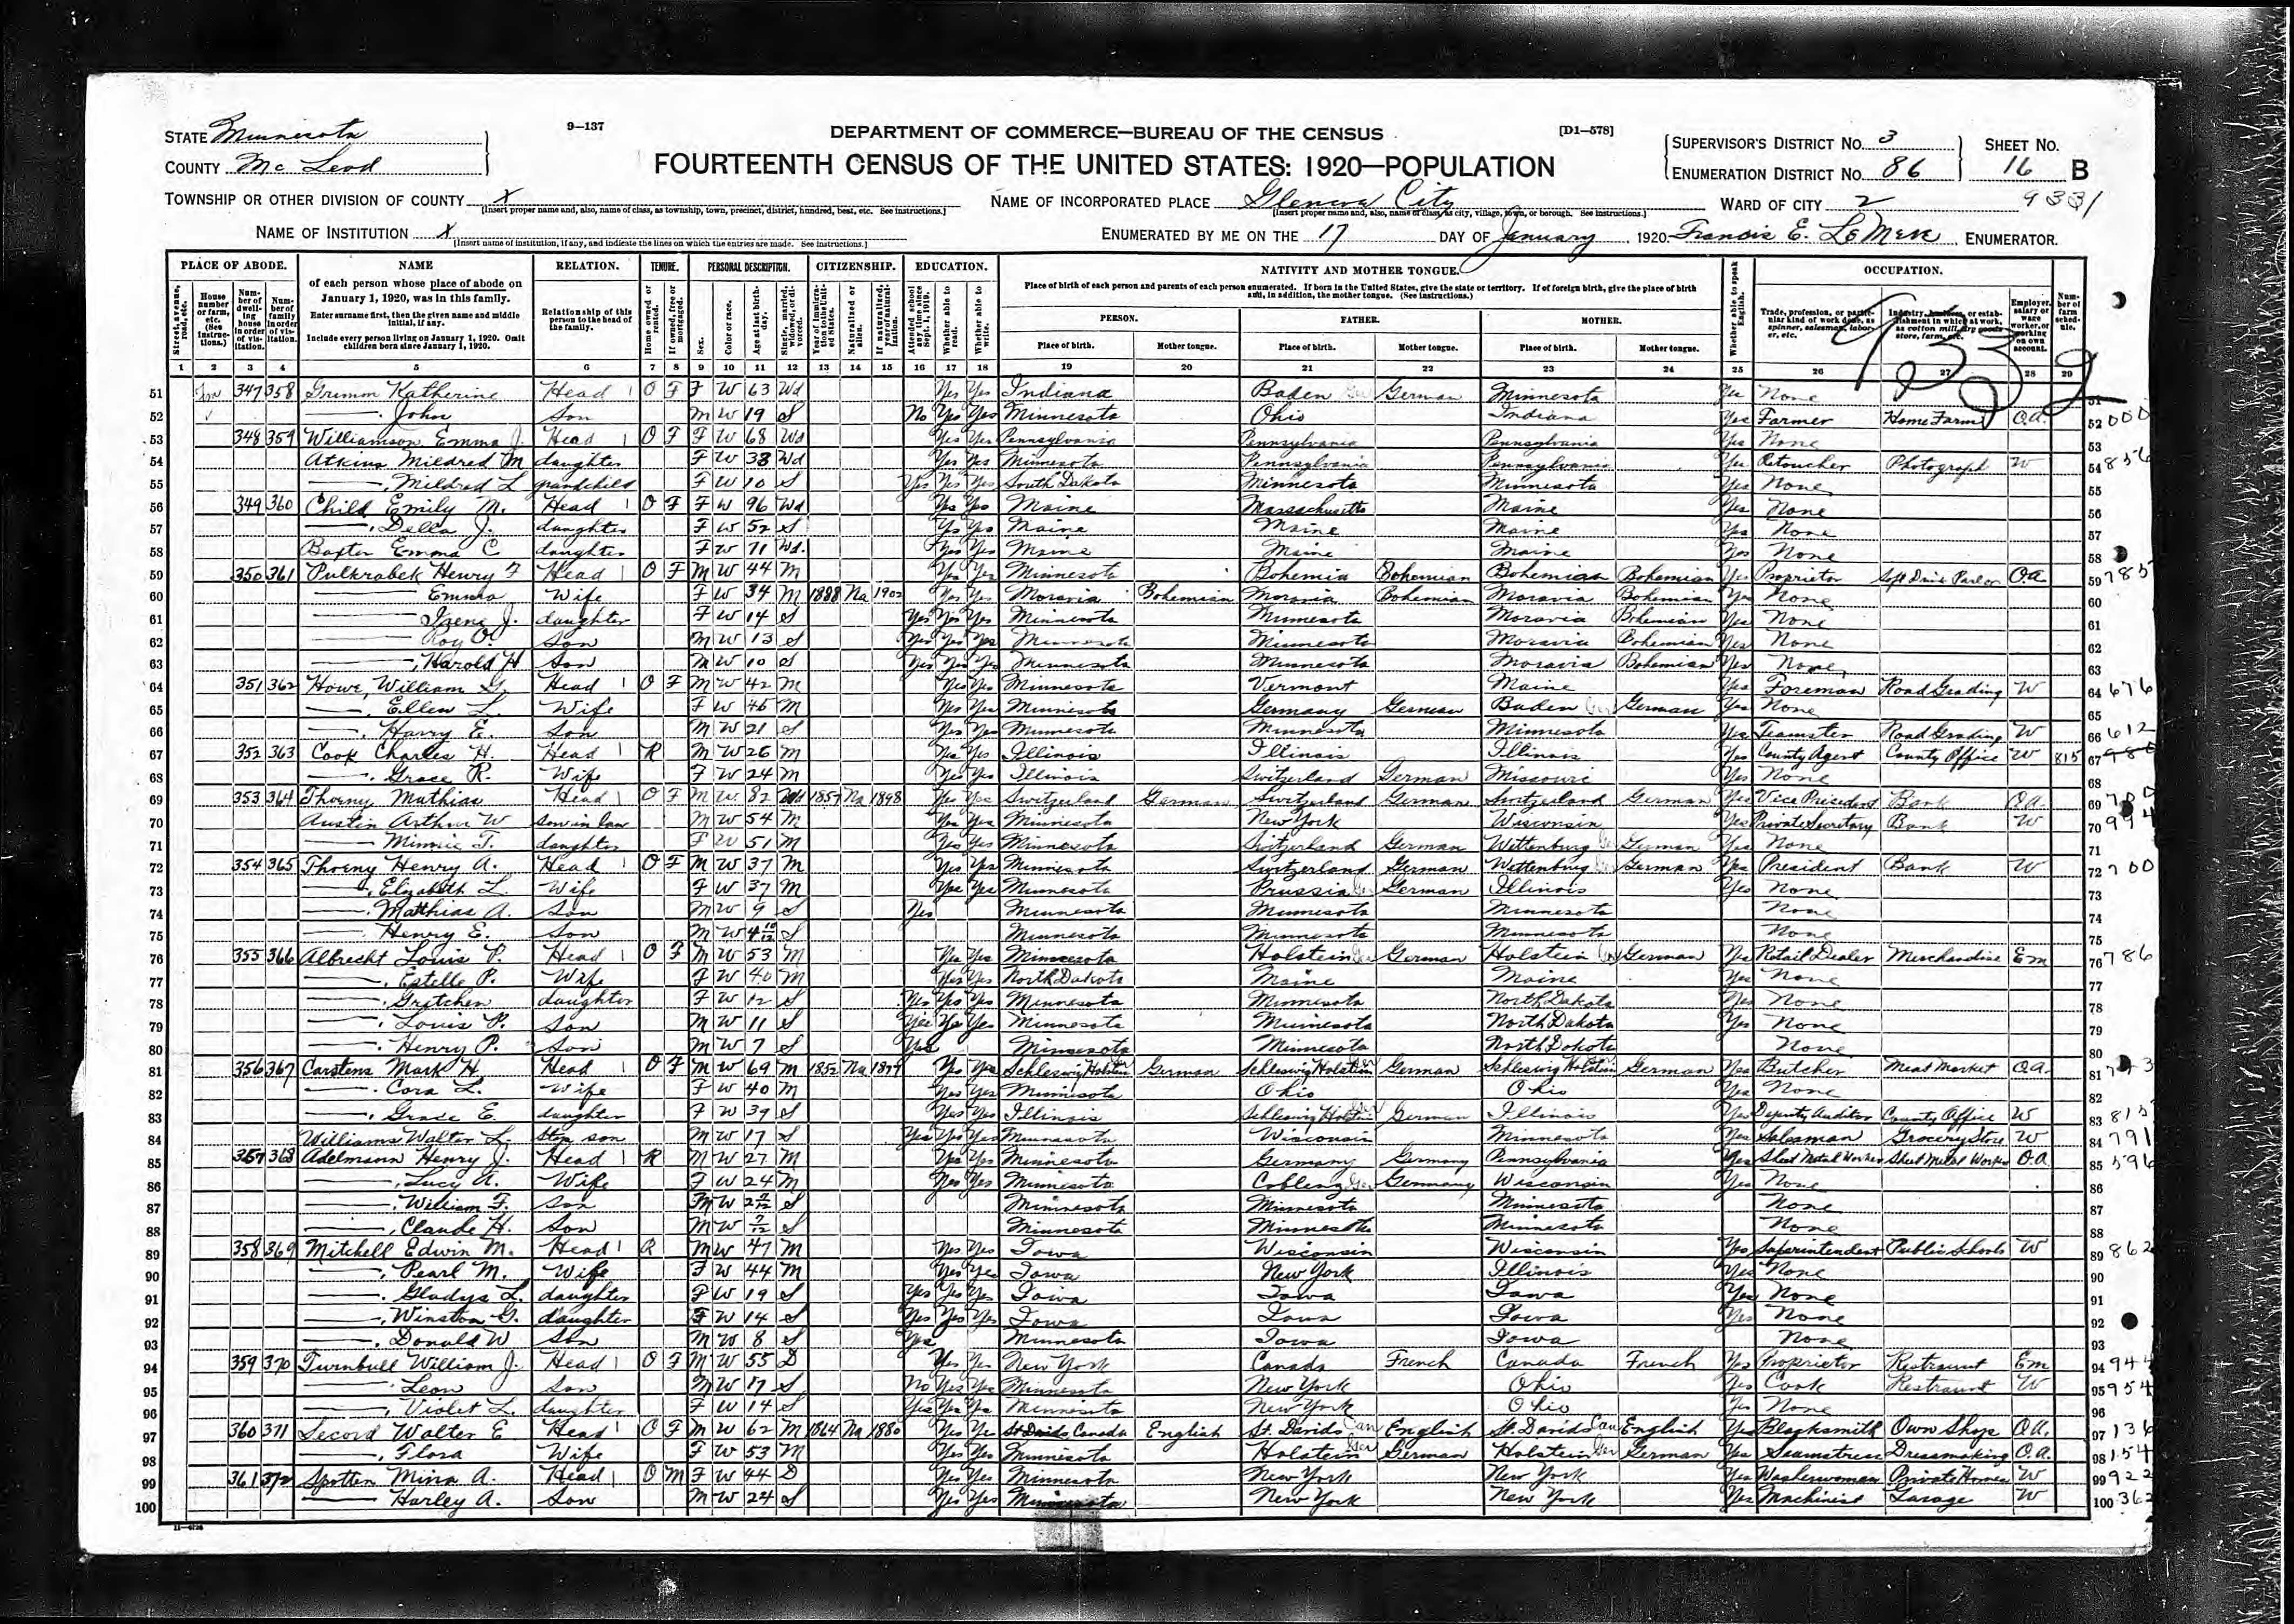 STATE Minnesota
COUNTY McLeod
9—137
DEPARTMENT OF COMMERCE—BUREAU OF THE CENSUS
[D1—578]
FOURTEENTH CENSUS OF THE UNITED STATES: 1920—POPULATION
SUPERVISOR'S DISTRICT No. 3
ENUMERATION DISTRICT No. 86
SHEET No. 16 B
9331
TOWNSHIP OR OTHER DIVISION OF COUNTY X
[Insert proper name and, also, name of class, as township, town, precinct, district, hundred, beat, etc. See instructions.]
NAME OF INCORPORATED PLACE Glencoe City
[Insert proper name and, also, name of class, as city, village, town, or borough. See instructions.]
WARD OF CITY 2
NAME OF INSTITUTION X
[Insert name of institution, if any, and indicate the lines on which the entries are made. See instructions.]
ENUMERATED BY ME ON THE 17 DAY OF January, 1920. Francis E. ENUMERATOR.
PLACE OF ABODE. NAME RELATION. TENURE. PERSONAL DESCRIPTION. CITIZENSHIP. EDUCATION. NATIVITY AND MOTHER TONGUE. OCCUPATION.
of each person whose place of abode on January 1, 1920, was in this family.
Enter surname first, then the given name and middle initial, if any.
Include every person living on January 1, 1920. Omit children born since January 1, 1920.
Relationship of this person to the head of the family.
Place of birth of each person and parents of each person enumerated. If born in the United States, give the state or territory. If of foreign birth, give the place of birth and, in addition, the mother tongue. (See instructions.)
PERSON. FATHER. MOTHER.
Place of birth. Mother tongue. Place of birth. Mother tongue. Place of birth. Mother tongue.
1 2 3 4 5 6 7 8 9 10 11 12 13 14 15 16 17 18 19 20 21 22 23 24 25 26 27 28 29
51 347 358 Grimm Katherine Head O F F W 63 Wd Yes Yes Indiana Baden German Minnesota None
52 John Son M W 19 S No Yes Yes Minnesota Ohio Indiana Yes Farmer Home Farm O.A. 52 000
53 348 359 Williamson Emma J. Head O F F W 68 Wd Yes Yes Pennsylvania Pennsylvania Pennsylvania Yes None 53
54 Atkins Mildred M daughter F W 38 Wd Yes Yes Minnesota Pennsylvania Pennsylvania Yes Retoucher Photograph W 54 856
55 Mildred L grandchild F W 10 S Yes Yes Yes South Dakota Minnesota Minnesota Yes None 55
56 349 360 Child Emily M. Head O F F W 96 Wd Yes Yes Maine Massachusetts Maine Yes None 56
57 Della J. daughter F W 52 S Yes Yes Maine Maine Maine Yes None 57
58 Baxter Emma C daughter F W 71 Wd. Yes Yes Maine Maine Maine Yes None 58
59 350 361 Pulkrabek Henry F Head O F M W 44 M Yes Yes Minnesota Bohemia Bohemian Bohemian Bohemian Yes Proprietor Soft Drink Parlor O.A 59 785
60 Emma Wife F W 34 M 1888 Na 1902 Yes Yes Moravia Bohemian Moravia Bohemian Moravia Bohemian Yes None 60
61 Irene J. daughter F W 14 S Yes Yes Yes Minnesota Minnesota Moravia Bohemian Yes None 61
62 Roy O. Son M W 13 S Yes Yes Yes Minnesota Minnesota Moravia Bohemian Yes None 62
63 Harold H Son M W 10 S Yes Yes Yes Minnesota Minnesota Moravia Bohemian Yes None 63
64 351 362 Howe, William G. Head O F M W 42 M Yes Yes Minnesota Vermont Maine Yes Foreman Road Grading W 64 676
65 Ellen L. Wife F W 46 M Yes Yes Minnesota Germany German Baden German Yes None 65
66 Harry E. Son M W 21 S Yes Yes Minnesota Minnesota Minnesota Yes Teamster Road Grading W 66 612
67 352 363 Cook Charles H. Head R M W 26 M Yes Yes Illinois Illinois Illinois Yes County Agent County Office W 815 67
68 Grace R. Wife F W 24 M Yes Yes Illinois Switzerland German Missouri Yes None 68
69 353 364 Thoeny Mathias Head O F M W 82 1857 Na 1898 Yes Yes Switzerland German Switzerland German Switzerland German Yes Vice President Bank O.A. 69 700
70 Austin Arthur W son in law M W 54 M Yes Yes Minnesota New York Wisconsin Yes Private Secretary Bank W 70 994
71 Minnie T. daughter F W 51 M Yes Yes Minnesota Switzerland German Wettenburg German Yes None 71
72 354 365 Thoeny Henry A. Head O F M W 37 M Yes Yes Minnesota Switzerland German Wettenburg German Yes President Bank W 72 700
73 Elizabeth L. Wife F W 37 M Yes Yes Minnesota Prussia German Illinois Yes None 73
74 Matthias A. Son M W 9 S Yes Minnesota Minnesota Minnesota None 74
75 Henry E. Son M W 4 10/12 S Minnesota Minnesota Minnesota None 75
76 355 366 Albrecht Louis P. Head O F M W 53 M Yes Yes Minnesota Holstein German Holstein German Yes Retail Dealer Merchandise Em 76 786
77 Estelle P. Wife F W 40 M Yes Yes North Dakota Maine Maine Yes None 77
78 Gretchen daughter F W 12 S Yes Yes Yes Minnesota Minnesota North Dakota Yes None 78
79 Louis P. Son M W 11 S Yes Yes Yes Minnesota Minnesota North Dakota Yes None 79
80 Henry P. Son M W 7 S Yes Minnesota Minnesota North Dakota None 80
81 356 367 Carstens Mark H Head O F M W 69 M 1852 Na Yes Yes Schleswig Holstein German Schleswig Holstein German Schleswig Holstein German Yes Butcher Meat Market O.A. 81
82 Cora L. Wife F W 40 M Yes Yes Minnesota Ohio Ohio Yes None 82
83 Grace E. daughter F W 39 S Yes Yes Illinois Schleswig Holstein German Illinois Yes Deputy Auditor County Office W 83 815
84 Williams Walter L. Step son M W 17 S Yes Yes Yes Minnesota Wisconsin Minnesota Yes Salesman Grocery Store W 84 791
85 357 368 Adelmann Henry J. Head R M W 27 M Yes Yes Minnesota Germany Germany Pennsylvania Yes Sheet Metal Worker Sheet Metal Works O.A 85 596
86 Lucy A. Wife F W 24 M Yes Yes Minnesota Coblenz Germany Wisconsin Yes None 86
87 William F. Son M W S Minnesota Minnesota Minnesota None 87
88 Claude H. Son M W 7/12 S Minnesota Minnesota Minnesota None 88
89 358 369 Mitchell Edwin M. Head R M W 47 M Yes Yes Iowa Wisconsin Wisconsin Yes Superintendent Public Schools W 89 862
90 Pearl M. Wife F W 44 M Yes Yes Iowa New York Illinois Yes None 90
91 Gladys L. daughter F W 19 S Yes Yes Yes Iowa Iowa Iowa Yes None 91
92 Winston G. daughter F W 14 S Yes Yes Yes Iowa Iowa Iowa Yes None 92
93 Donald W Son M W 8 S Yes Minnesota Iowa Iowa None 93
94 359 370 Turnbull William J. Head O F M W 55 D Yes Yes New York Canada French Canada French Yes Proprietor Restraunt Em 94 944
95 Leon Son M W 17 S No Yes Yes Minnesota New York Ohio Yes Cook Restraunt W 95 954
96 Violet L. daughter F W 14 S Yes Yes Yes Minnesota New York Ohio Yes None 96
97 360 371 Secord Walter E Head O F M W 62 M 1864 Na 1880 Yes Yes St Davids Canada English St. Davids Can English St. Davids Can English Yes Blacksmith Own Shop O.A. 97 136
98 Flora Wife F W 53 M Yes Yes Minnesota Holstein Ger German Holstein Ger German Yes Seamstress Dressmaking O.A. 98 154
99 361 372 Spotten Mina A. Head O M F W 44 D Yes Yes Minnesota New York New York Yes Washerwoman Private Homes W 99 922
100 Harley A. Son M W 24 S Yes Yes Minnesota New York New York Yes Machinist Garage W 100 362